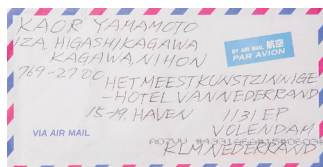 KAOR YAMAMOTO
IZA HIGASHIKAGAWA
KAGAWA NIHON
769-2700
BY AIR MAIL 航空
PAR AVION
HET MEEST KUNSTZINNIGE
-HOTEL VAN NEDERRAND
15-19 HAVEN 1131 EP
VOLENDAM
VIA AIR MAIL
KLM NEDERRAND